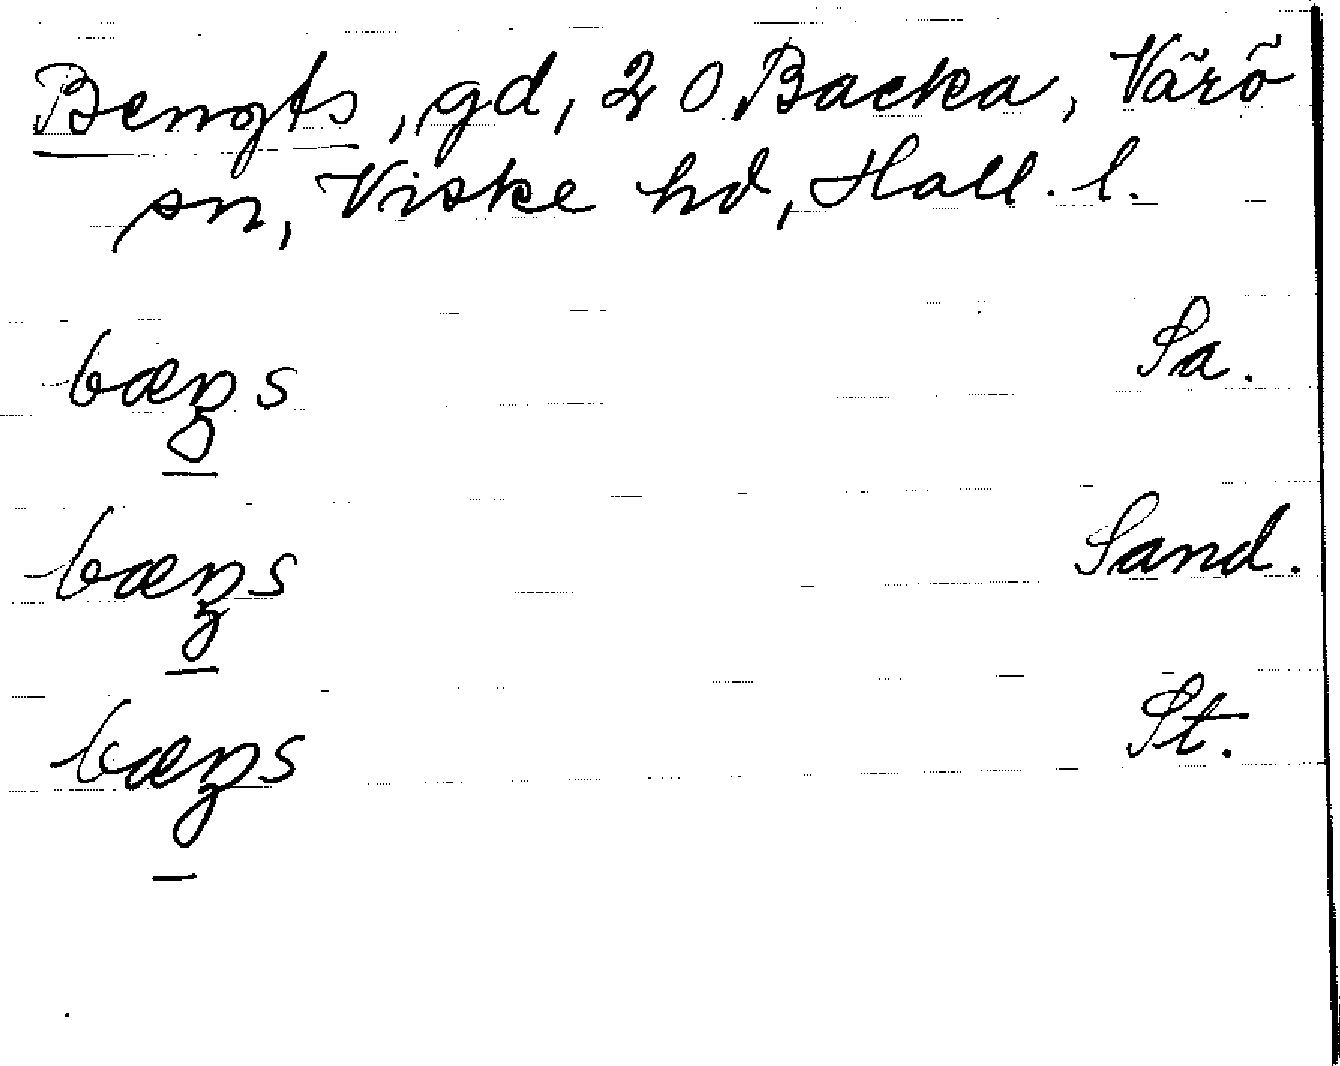 Bengts, gd, 2 O Backa, Värö
sn, Viske hd, Hall. l.
bæŋs Sa.
bæŋs Sand.
bæŋs St.